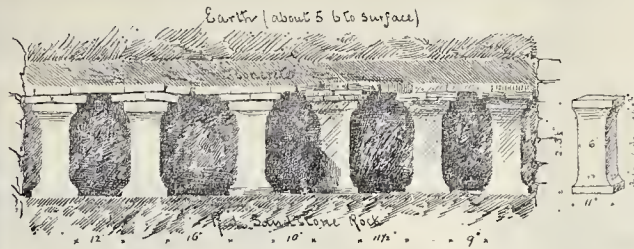 Earth (about 5 6 to surface)
Concrete
Red Sandstone Rock
12 " 16 " 10 " 11½ " 9"
6
11"